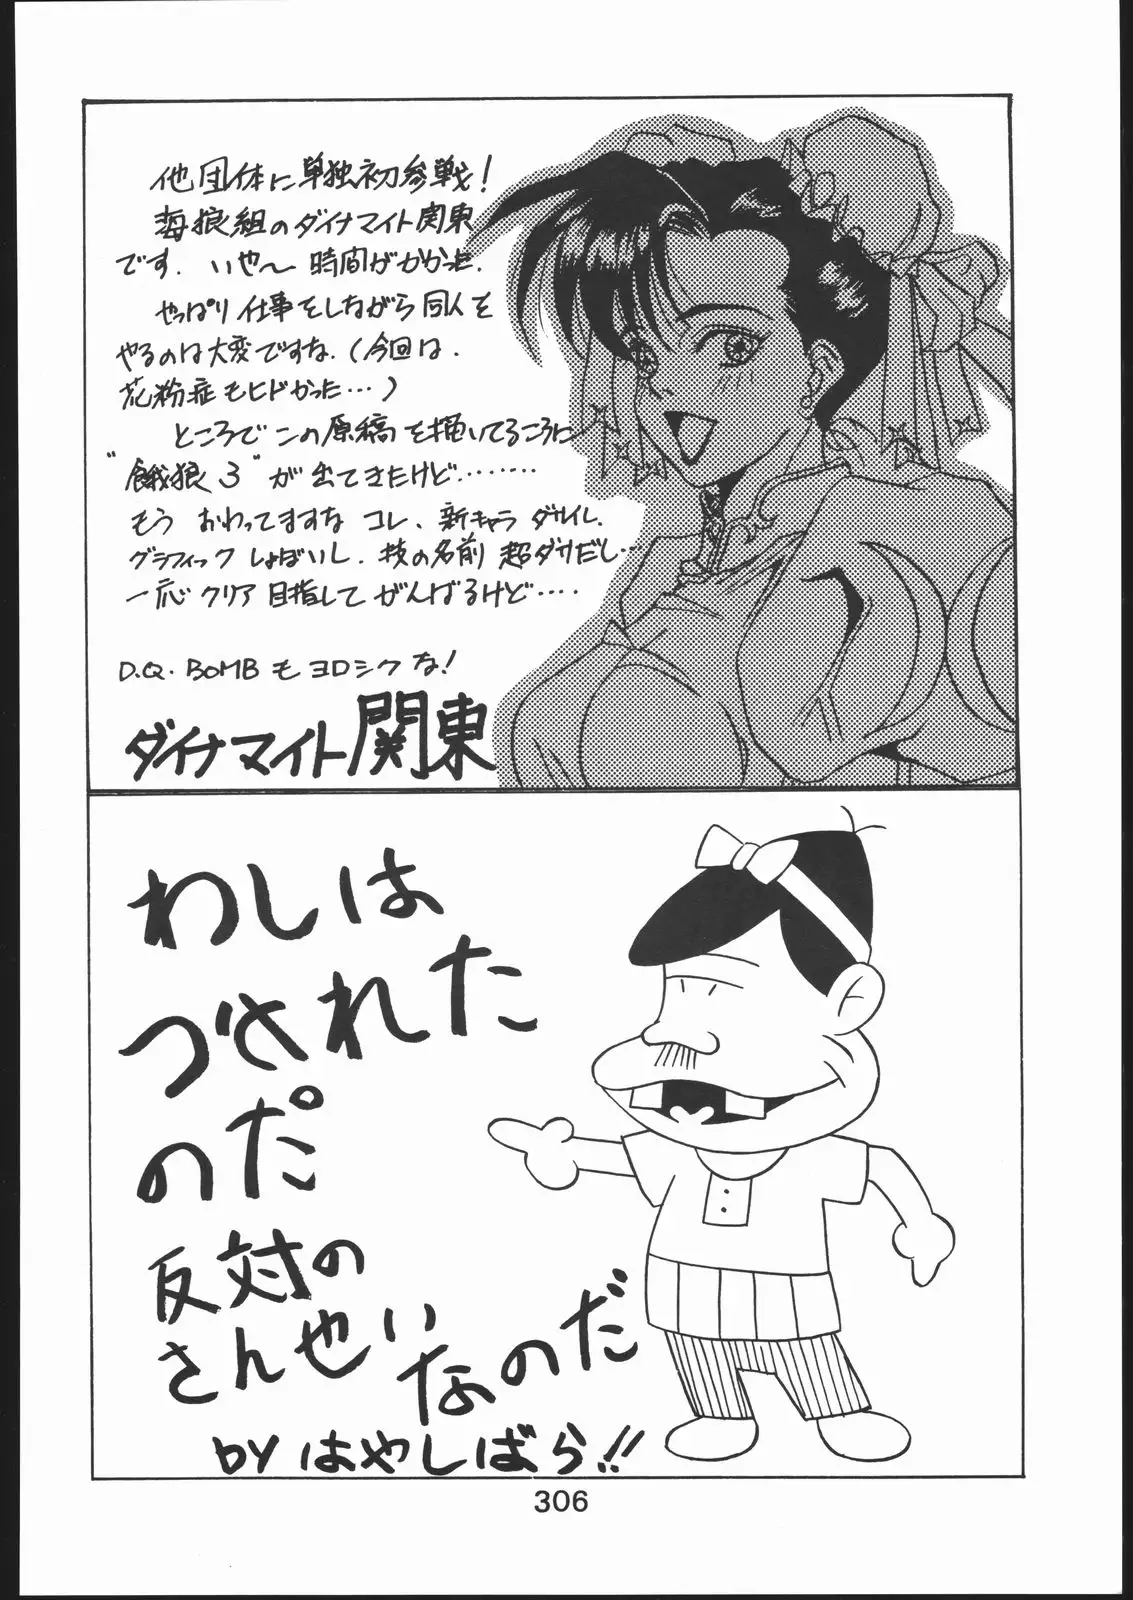 他団体に単独初参戦!
海狼組のダイナマイト関東
です. いや〜 時間がかかった.
やっぱり仕事をしながら同人を
やるのは大変ですな.(今回は.
花粉症もヒドかった…)
ところでこの原稿を描いてるころに
"餓狼3"が出てきたけど………
もう おわってますな コレ、新キャラ ダサイし.
グラフィック しょぼいし. 技の名前 超ダサだし…
一応 クリア 目指して がんばるけど….
D.Q. BOMB も ヨロシク な!
ダイナマイト関東
わしは
つされた
のだ
反対の
さんせい
なのだ
by はやしばら!!
306